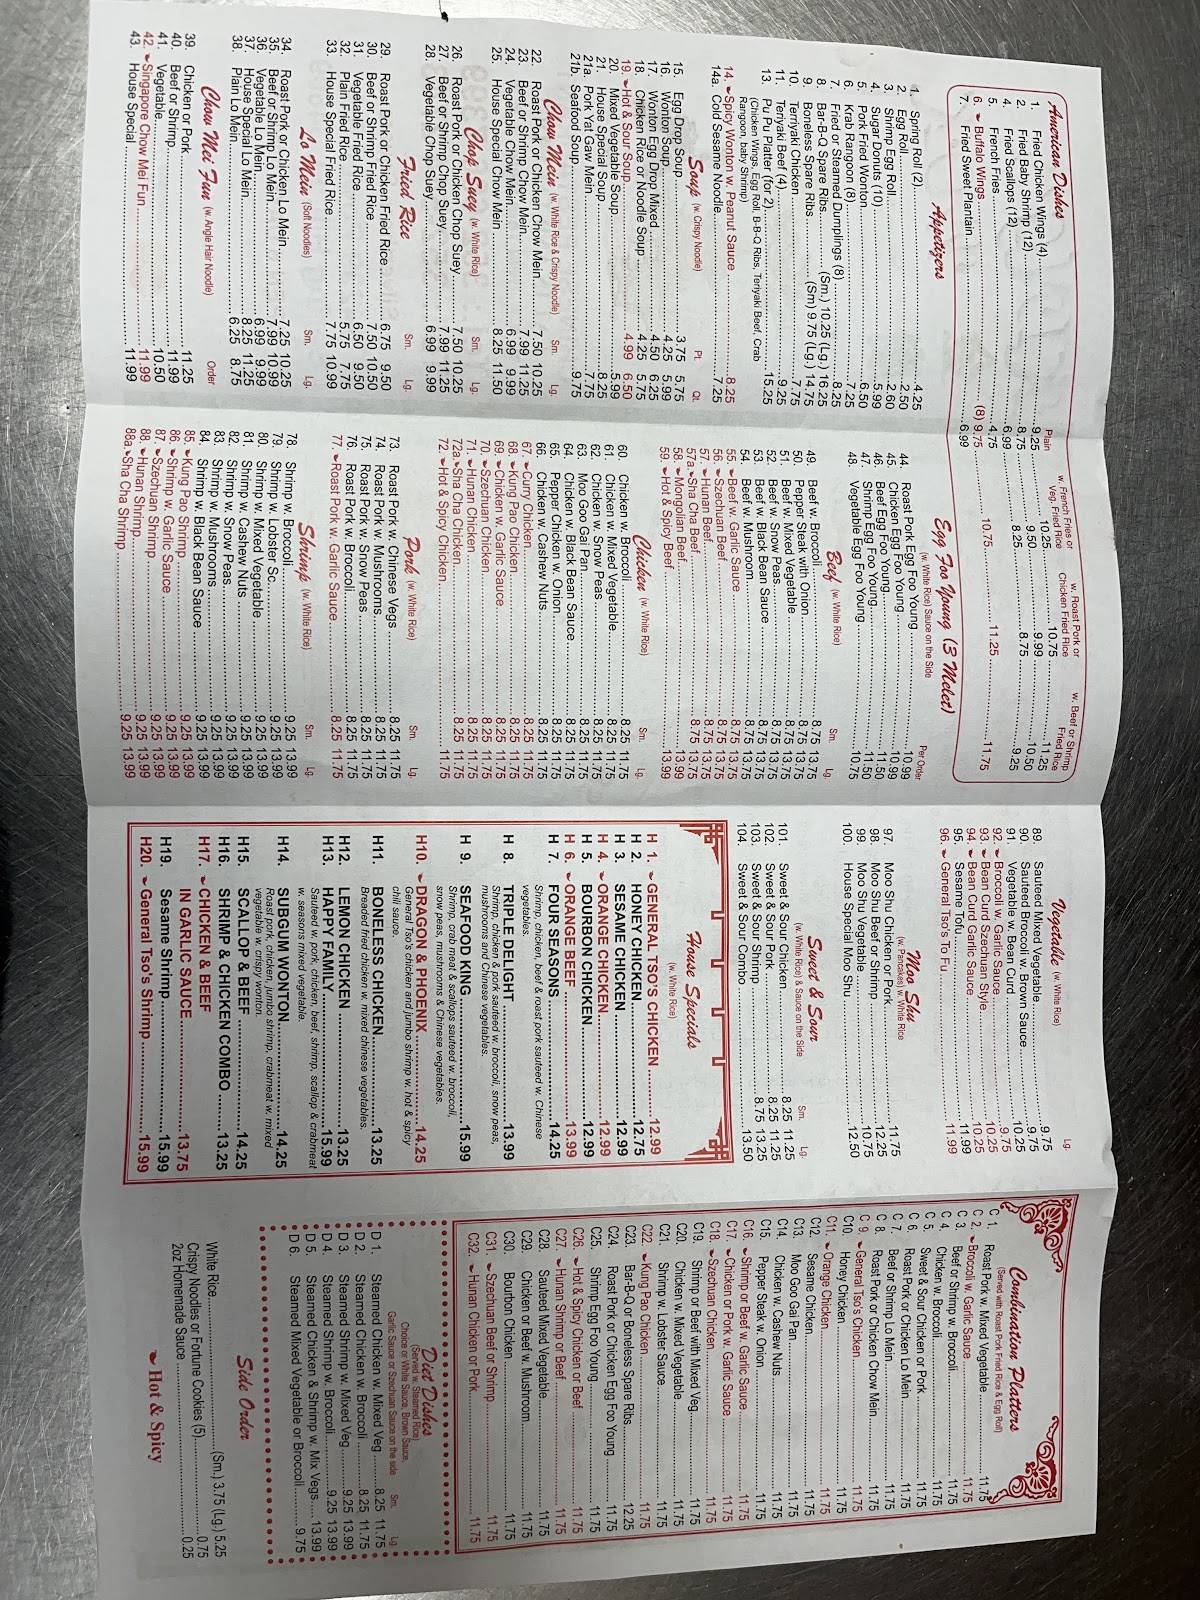 American Dishes
Plain w. French Fries or Veg. Fried Rice w. Roast Pork or Chicken Fried Rice w. Beef or Shrimp Fried Rice
1. Fried Chicken Wings (4) 9.25 10.25 10.75 11.25
2. Fried Baby Shrimp (12) 8.75 9.50 9.99 10.50
4. Fried Scallops (12) 6.99 8.25 8.75 9.25
5. French Fries 4.75
6. Buffalo Wings (8) 9.75 10.75 11.25 11.75
7. Fried Sweet Plantain 6.99
Appetizers
1. Spring Roll (2) 4.25
2. Egg Roll 2.50
3. Shrimp Egg Roll 2.60
4. Sugar Donuts (10) 5.99
5. Pork Fried Wonton 6.50
6. Krab Rangoon (8) 7.25
7. Fried or Steamed Dumplings (8) 8.25
8. Bar-B-Q Spare Ribs (Sm.) 10.25 (Lg.) 16.25
9. Boneless Spare Ribs (Sm) 9.75 (Lg.) 14.75
10. Terriyaki Chicken 7.75
11. Teriyaki Beef (4) 9.25
13. Pu Pu Platter (for 2) 15.25
(Chicken Wings, Egg Roll, B-B-Q Ribs, Teriyaki Beef, Crab
Rangoon, baby Shrimp)
14. Spicy Wonton w. Peanut Sauce 8.25
14a. Cold Sesame Noodle 7.25
Soup (w. Crispy Noodle) Pt. Qt.
15. Egg Drop Soup 3.75 5.75
16. Wonton Soup 4.25 5.99
17. Wonton Egg Drop Mixed 4.50 6.25
18. Chicken Rice or Noodle Soup 4.25 5.75
19. Hot & Sour Soup 4.99 6.50
20. Mixed Vegetable Soup 5.99
21. House Special Soup 8.25
21a. Pork Yat Gaw Mein 7.75
21b. Seafood Soup 9.75
Chow Mein (w. White Rice & Crispy Noodle) Sm. Lg.
22. Roast Pork or Chicken Chow Mein 7.50 10.25
23. Beef or Shrimp Chow Mein 7.99 11.25
24. Vegetable Chow Mein 6.99 9.99
25. House Special Chow Mein 8.25 11.50
Chop Suey (w. White Rice)
26. Roast Pork or Chicken Chop Suey 7.50 10.25
27. Beef or Shrimp Chop Suey 7.99 11.25
28. Vegetable Chop Suey 6.99 9.99
Fried Rice Sm. Lg.
29. Roast Pork or Chicken Fried Rice 6.75 9.50
30. Beef or Shrimp Fried Rice 7.50 10.50
31. Vegetable Fried Rice 6.50 9.50
32. Plain Fried Rice 5.75 7.75
33. House Special Fried Rice 7.75 10.99
Lo Mein (Soft Noodles) Sm. Lg.
34. Roast Pork or Chicken Lo Mein 7.25 10.25
35. Beef or Shrimp Lo Mein 7.99 10.99
36. Vegetable Lo Mein 6.99 9.99
37. House Special Lo Mein 8.25 11.25
38. Plain Lo Mein 6.25 8.75
Chow Mei Fun (w. Angle Hair Noodle) Order
39. Chicken or Pork 11.25
40. Beef or Shrimp 11.99
41. Vegetable 10.50
42. Singapore Chow Mei Fun 11.99
43. House Special 11.99
Egg Foo Young (3 Melet)
(w. White Rice) Sauce on the Side Per Order
44. Roast Pork Egg Foo Young 10.99
45. Chicken Egg Foo Young 10.99
46. Beef Egg Foo Young 11.50
47. Shrimp Egg Foo Young 11.50
48. Vegetable Egg Foo Young 10.75
Beef (w. White Rice) Sm. Lg.
49. Beef w. Broccoli 8.75 13.75
50. Pepper Steak with Onion 8.75 13.75
51. Beef w. Mixed Vegetable 8.75 13.75
52. Beef w. Snow Peas 8.75 13.75
53. Beef w. Black Bean Sauce 8.75 13.75
54. Beef w. Mushroom 8.75 13.75
55. Beef w. Garlic Sauce 8.75 13.75
56. Szechuan Beef 8.75 13.75
57. Hunan Beef 8.75 13.75
57a. Sha Cha Beef 8.75 13.75
58. Mongolian Beef 13.99
59. Hot & Spicy Beef 13.99
Chicken (w. White Rice) Sm. Lg.
60. Chicken w. Broccoli 8.25 11.75
61. Chicken w. Mixed Vegetable 8.25 11.75
62. Chicken w. Snow Peas 8.25 11.75
63. Moo Goo Gai Pan 8.25 11.75
64. Chicken w. Black Bean Sauce 8.25 11.75
65. Pepper Chicken w. Onion 8.25 11.75
66. Chicken w. Cashew Nuts 8.25 11.75
67. Curry Chicken 8.25 11.75
68. Kung Pao Chicken 8.25 11.75
69. Chicken w. Garlic Sauce 8.25 11.75
70. Szechuan Chicken 8.25 11.75
71. Hunan Chicken 8.25 11.75
72a. Sha Cha Chicken 8.25 11.75
72. Hot & Spicy Chicken 11.75
Pork (w. White Rice) Sm. Lg.
73. Roast Pork w. Chinese Vegs 8.25 11.75
74. Roast Pork w. Mushrooms 8.25 11.75
75. Roast Pork w. Snow Peas 8.25 11.75
76. Roast Pork w. Broccoli 8.25 11.75
77. Roast Pork w. Garlic Sauce 8.25 11.75
Shrimp (w. White Rice) Sm. Lg.
78. Shrimp w. Broccoli 9.25 13.99
79. Shrimp w. Lobster Sc. 9.25 13.99
80. Shrimp w. Mixed Vegetable 9.25 13.99
81. Shrimp w. Cashew Nuts 9.25 13.99
82. Shrimp w. Snow Peas 9.25 13.99
83. Shrimp w. Mushrooms 9.25 13.99
84. Shrimp w. Black Bean Sauce 9.25 13.99
85. Kung Pao Shrimp 9.25 13.99
86. Shrimp w. Garlic Sauce 9.25 13.99
87. Szechuan Shrimp 9.25 13.99
88. Hunan Shrimp 9.25 13.99
88a. Sha Cha Shrimp 9.25 13.99
Vegetable (w. White Rice) Lg.
89. Sauteed Mixed Vegetable 9.75
90. Sauteed Broccoli w. Brown Sauce 9.75
91. Vegetable w. Bean Curd 10.25
92. Broccoli w. Garlic Sauce 9.75
93. Bean Curd Szechuan Style 10.25
94. Bean Curd Garlic Sauce 10.25
95. Sesame Tofu 11.99
96. General Tso's To Fu 11.99
Moo Shu
(w. Pancakes) w. White Rice
97. Moo Shu Chicken or Pork 11.75
98. Moo Shu Beef or Shrimp 12.25
99. Moo Shu Vegetable 10.75
100. House Special Moo Shu 12.50
Sweet & Sour
(w. White Rice) & Sauce on the Side Sm. Lg.
101. Sweet & Sour Chicken 8.25 11.25
102. Sweet & Sour Pork 8.25 11.25
103. Sweet & Sour Shrimp 8.75 13.25
104. Sweet & Sour Combo 13.50
House Specials
(w. White Rice)
H 1. GENERAL TSO'S CHICKEN 12.99
H 2. HONEY CHICKEN 12.75
H 3. SESAME CHICKEN 12.99
H 4. ORANGE CHICKEN 12.99
H 5. BOURBON CHICKEN 12.99
H 6. ORANGE BEEF 13.99
H 7. FOUR SEASONS 14.25
Shrimp, chicken, beef & roast pork sauteed w. Chinese
vegetables.
H 8. TRIPLE DELIGHT 13.99
Shrimp, chicken & pork sauteed w. broccoli, snow peas,
mushrooms and Chinese vegetables.
H 9. SEAFOOD KING 15.99
Shrimp, crab meat & scallops sauteed w. broccoli,
snow peas, mushrooms & Chinese vegetables.
H10. DRAGON & PHOENIX 14.25
General Tso's chicken and jumbo shrimp w. hot & spicy
chili sauce.
H11. BONELESS CHICKEN 13.25
Breaded fried chicken w. mixed chinese vegetables.
H12. LEMON CHICKEN 13.25
H13. HAPPY FAMILY 15.99
Sauteed w. pork, chicken, beef, shrimp, scallop & crabmeat
w. seasons mixed vegetable.
H14. SUBGUM WONTON 14.25
Roast pork, chicken, jumbo shrimp, crabmeat w. mixed
vegetable w. crispy wonton.
H15. SCALLOP & BEEF 14.25
H16. SHRIMP & CHICKEN COMBO 13.25
H17. CHICKEN & BEEF
IN GARLIC SAUCE 13.75
H19. Sesame Shrimp 15.99
H20. General Tso's Shrimp 15.99
Combination Platters
(Served with Roast Pork Fried Rice & Egg Roll)
C 1. Roast Pork w. Mixed Vegetable 11.75
C 2. Broccoli w. Garlic Sauce 11.75
C 3. Beef or Shrimp w. Broccoli 11.75
C 4. Chicken w. Broccoli 11.75
C 5. Sweet & Sour Chicken or Pork 11.75
C 6. Roast Pork or Chicken Lo Mein 11.75
C 7. Beef or Shrimp Lo Mein 11.75
C 8. Roast Pork or Chicken Chow Mein 11.75
C 9. General Tso's Chicken 11.75
C10. Honey Chicken 11.75
C11. Orange Chicken 11.75
C12. Sesame Chicken 11.75
C13. Moo Goo Gai Pan 11.75
C14. Chicken w. Cashew Nuts 11.75
C15. Pepper Steak w. Onion 11.75
C16. Shrimp or Beef w. Garlic Sauce 11.75
C17. Chicken or Pork w. Garlic Sauce 11.75
C18. Szechuan Chicken 11.75
C19. Shrimp or Beef with Mixed Veg 11.75
C20. Chicken w. Mixed Vegetable 11.75
C21. Shrimp w. Lobster Sauce 11.75
C22. Kung Pao Chicken 11.75
C23. Bar-B-Q or Boneless Spare Ribs 12.25
C24. Roast Pork or Chicken Egg Foo Young 11.75
C25. Shrimp Egg Foo Young 11.75
C26. Hot & Spicy Chicken or Beef 11.75
C27. Hunan Shrimp or Beef 11.75
C28. Sauteed Mixed Vegetable 11.75
C29. Chicken or Beef w. Mushroom 11.75
C30. Bourbon Chicken 11.75
C31. Szechuan Beef or Shrimp 11.75
C32. Hunan Chicken or Pork 11.75
Diet Dishes
(Served w. Steamed Rice)
Choice or White Sauce, Brown Sauce,
Garlic Sauce or Szechuan Sauce on the side Sm. Lg.
D 1. Steamed Chicken w. Mixed Veg 8.25 11.75
D 2. Steamed Chicken w. Broccoli 8.25 11.75
D 3. Steamed Shrimp w. Mixed Veg 9.25 13.99
D 4. Steamed Shrimp w. Broccoli 9.25 13.99
D 5. Steamed Chicken & Shrimp w. Mix Vegs 13.99
D 6. Steamed Mixed Vegetable or Broccoli 9.75
Side Order
White Rice (Sm.) 3.75 (Lg.) 5.25
Crispy Noodles or Fortune Cookies (5) 0.75
2oz Homemade Sauce 0.25
Hot & Spicy